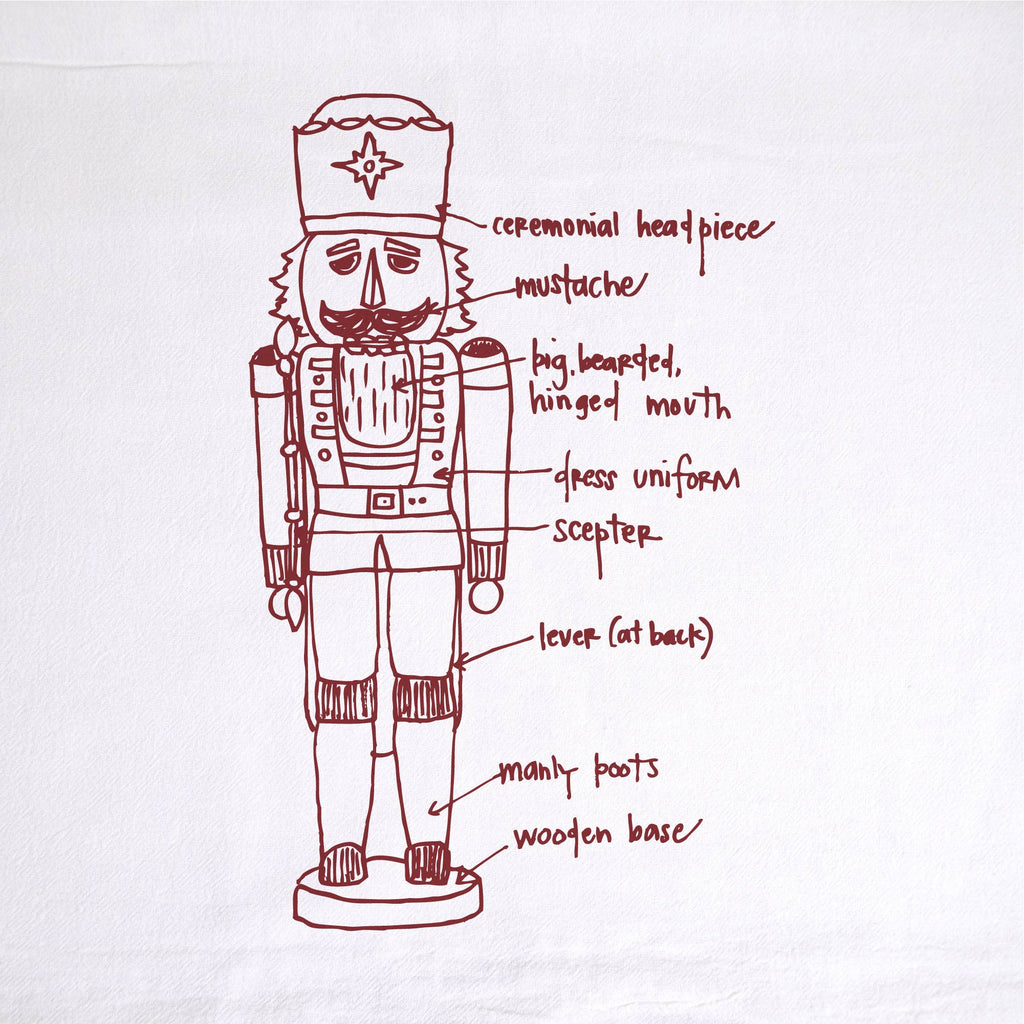 ceremonial headpiece
mustache
big, bearded,
hinged mouth
dress uniform
scepter
lever (at back)
manly boots
wooden base